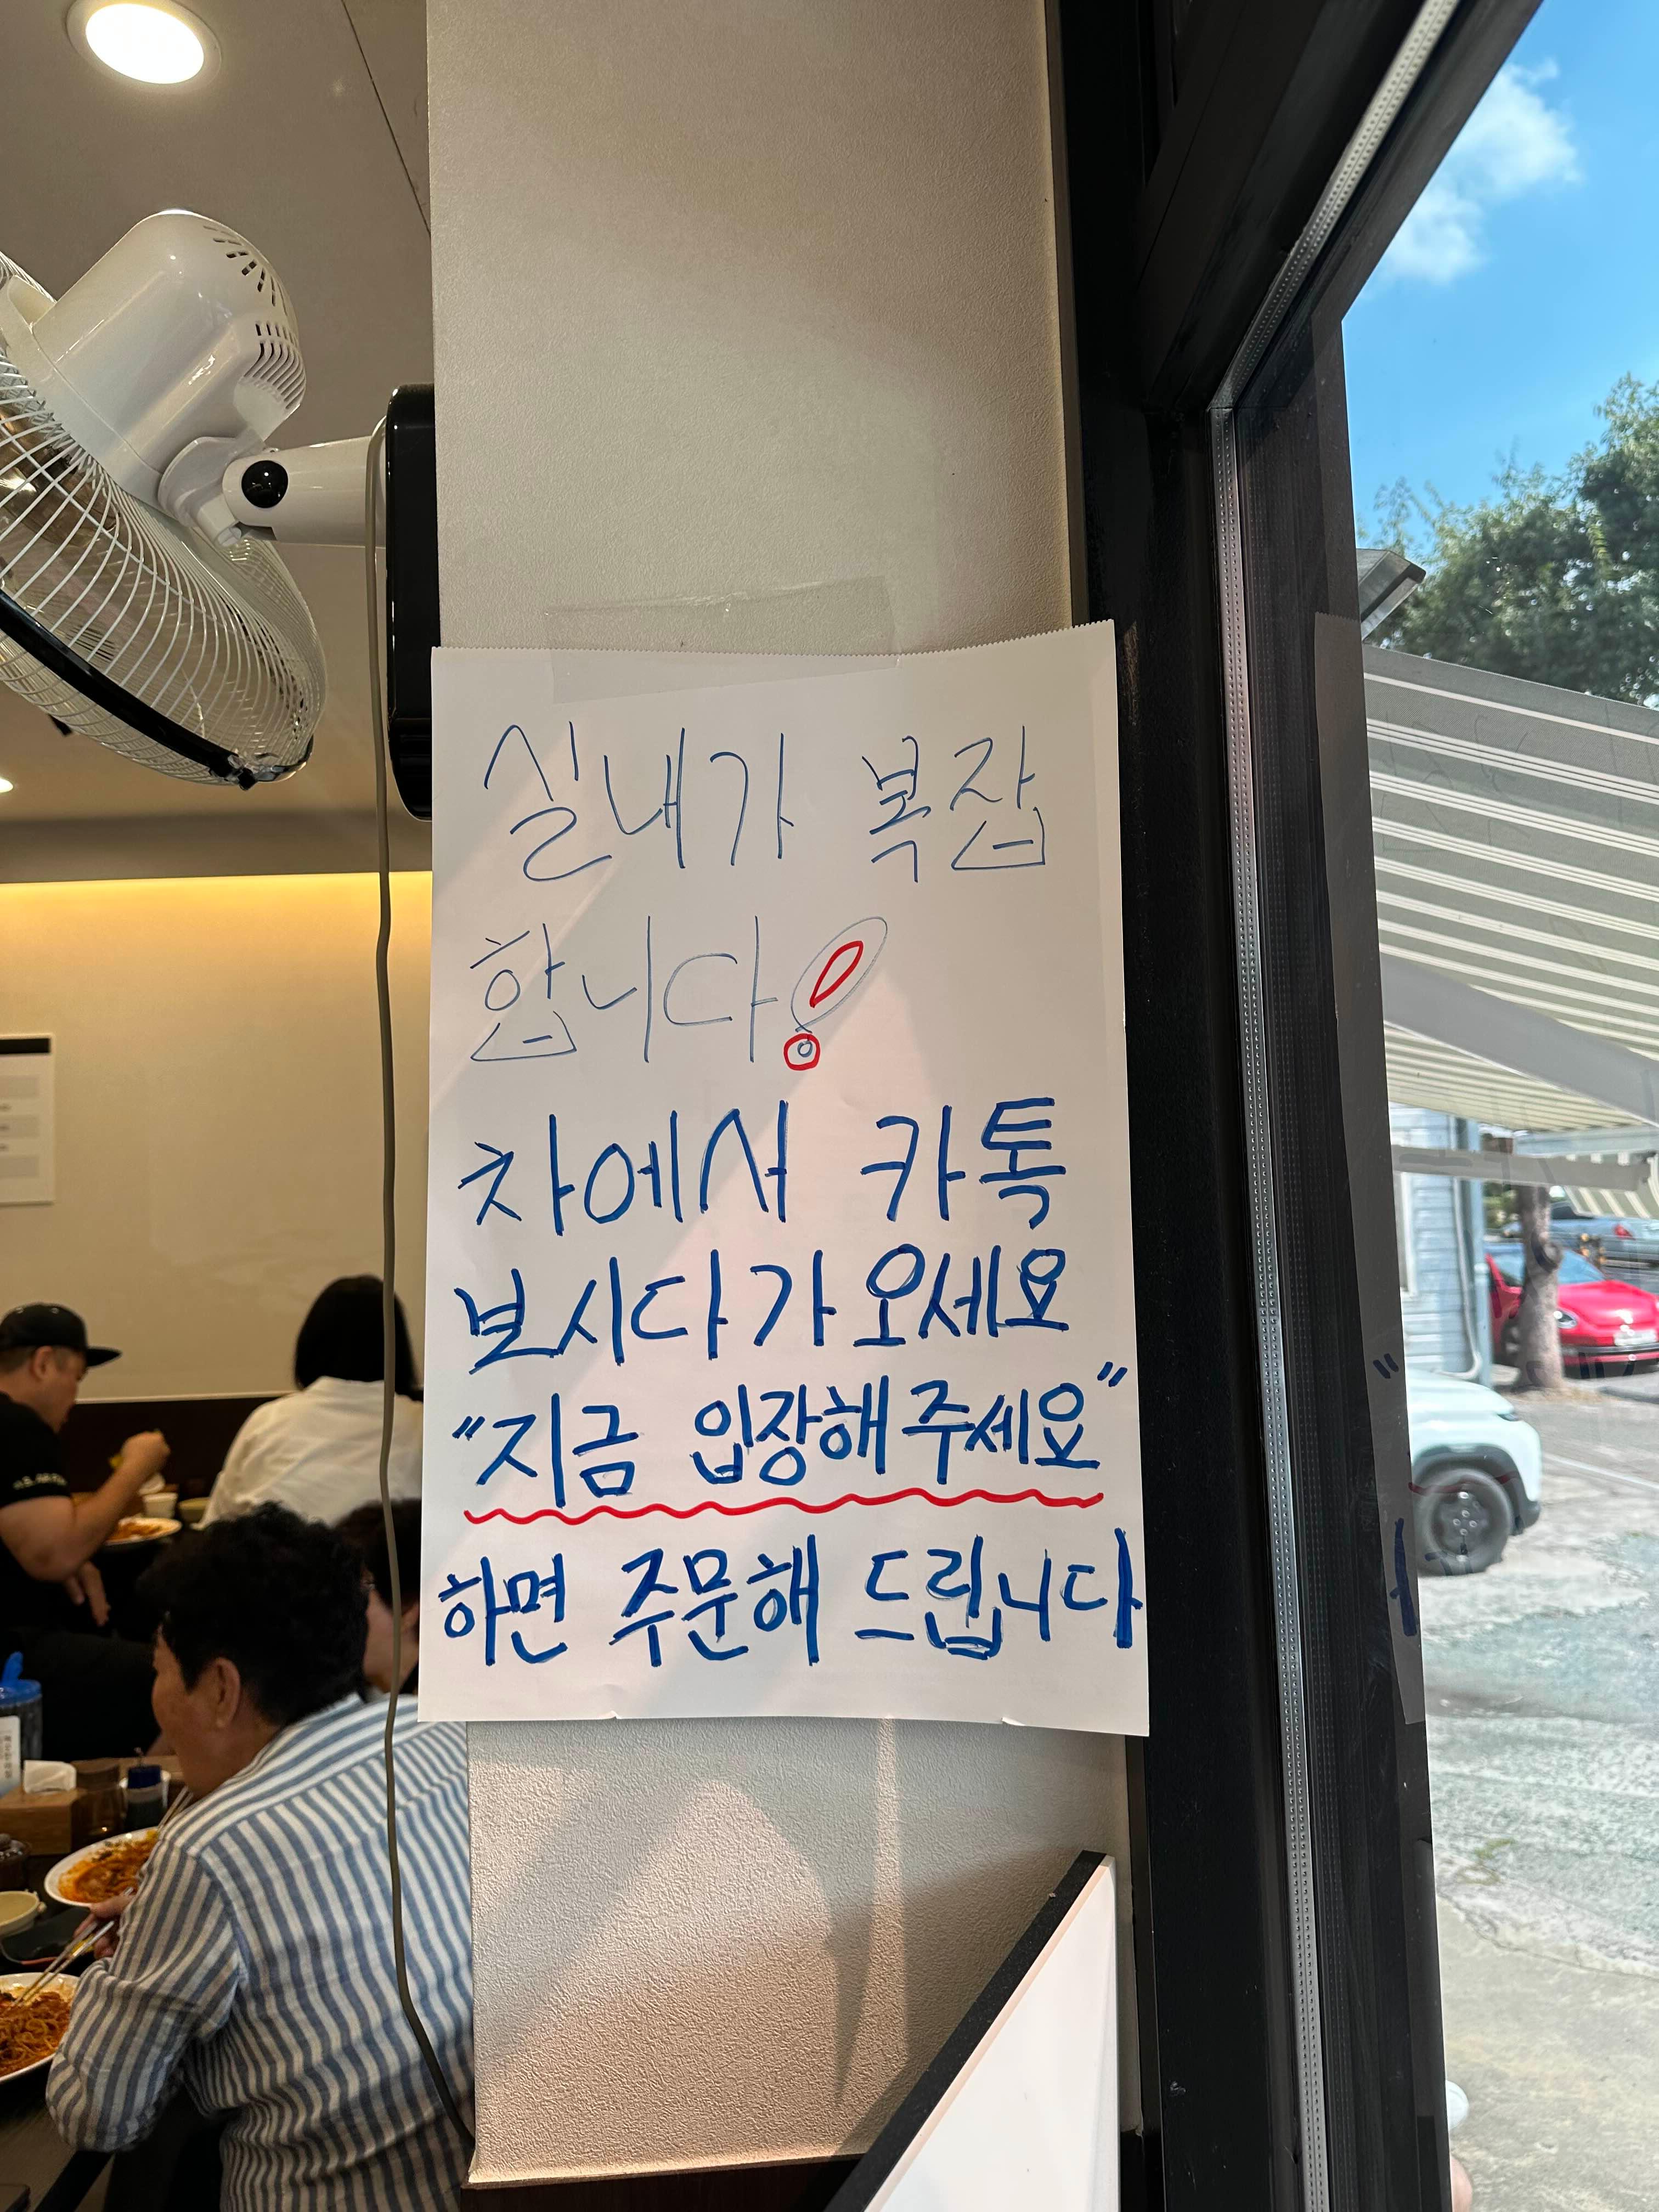 실내가 복잡
합니다!
차에서 카톡
보시다가 오세요
"지금 입장해주세요"
하면 주문해 드립니다